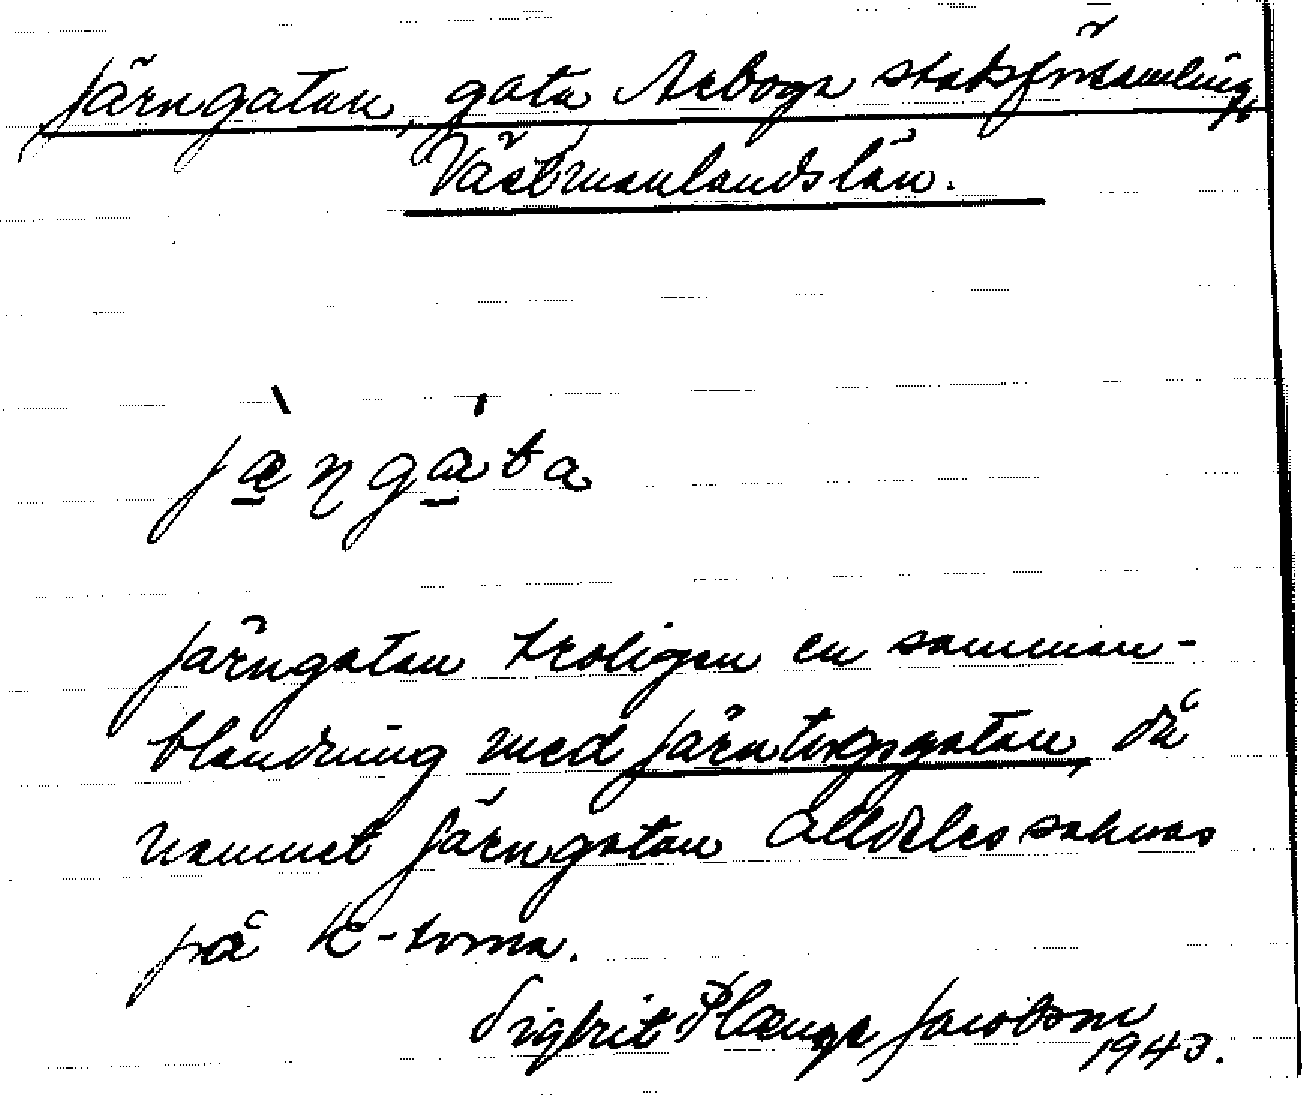 Järngatan, gata Arboga stadsförsamling,
Västmanlands län.
jæ̀ngáta
Järngatan troligen en samman-
blandning med Järntorgsgatan, då
namnet Järngatan alldeles saknas
på k-torna.
Sigfrit Plænge Jacobson
1943.